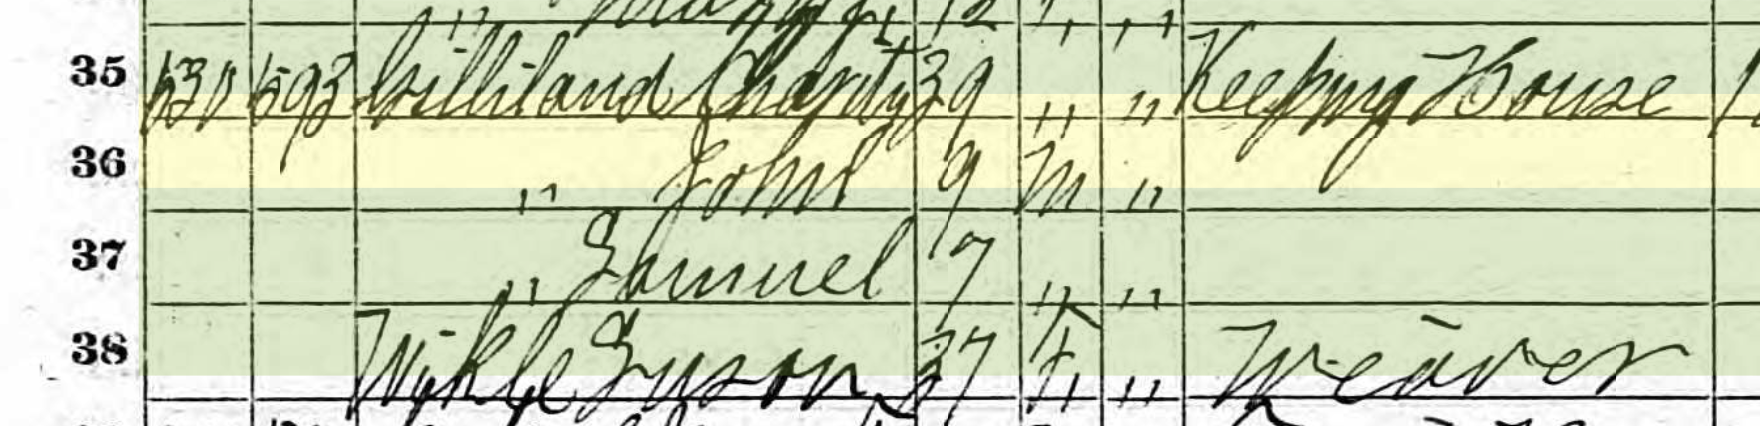 12 " "
35 593 Gilliland Charity 39 " " Keeping House
36 " John 9 M "
37 " Samuel 7 " "
38 Wykle Suson 37 F "  Weaver